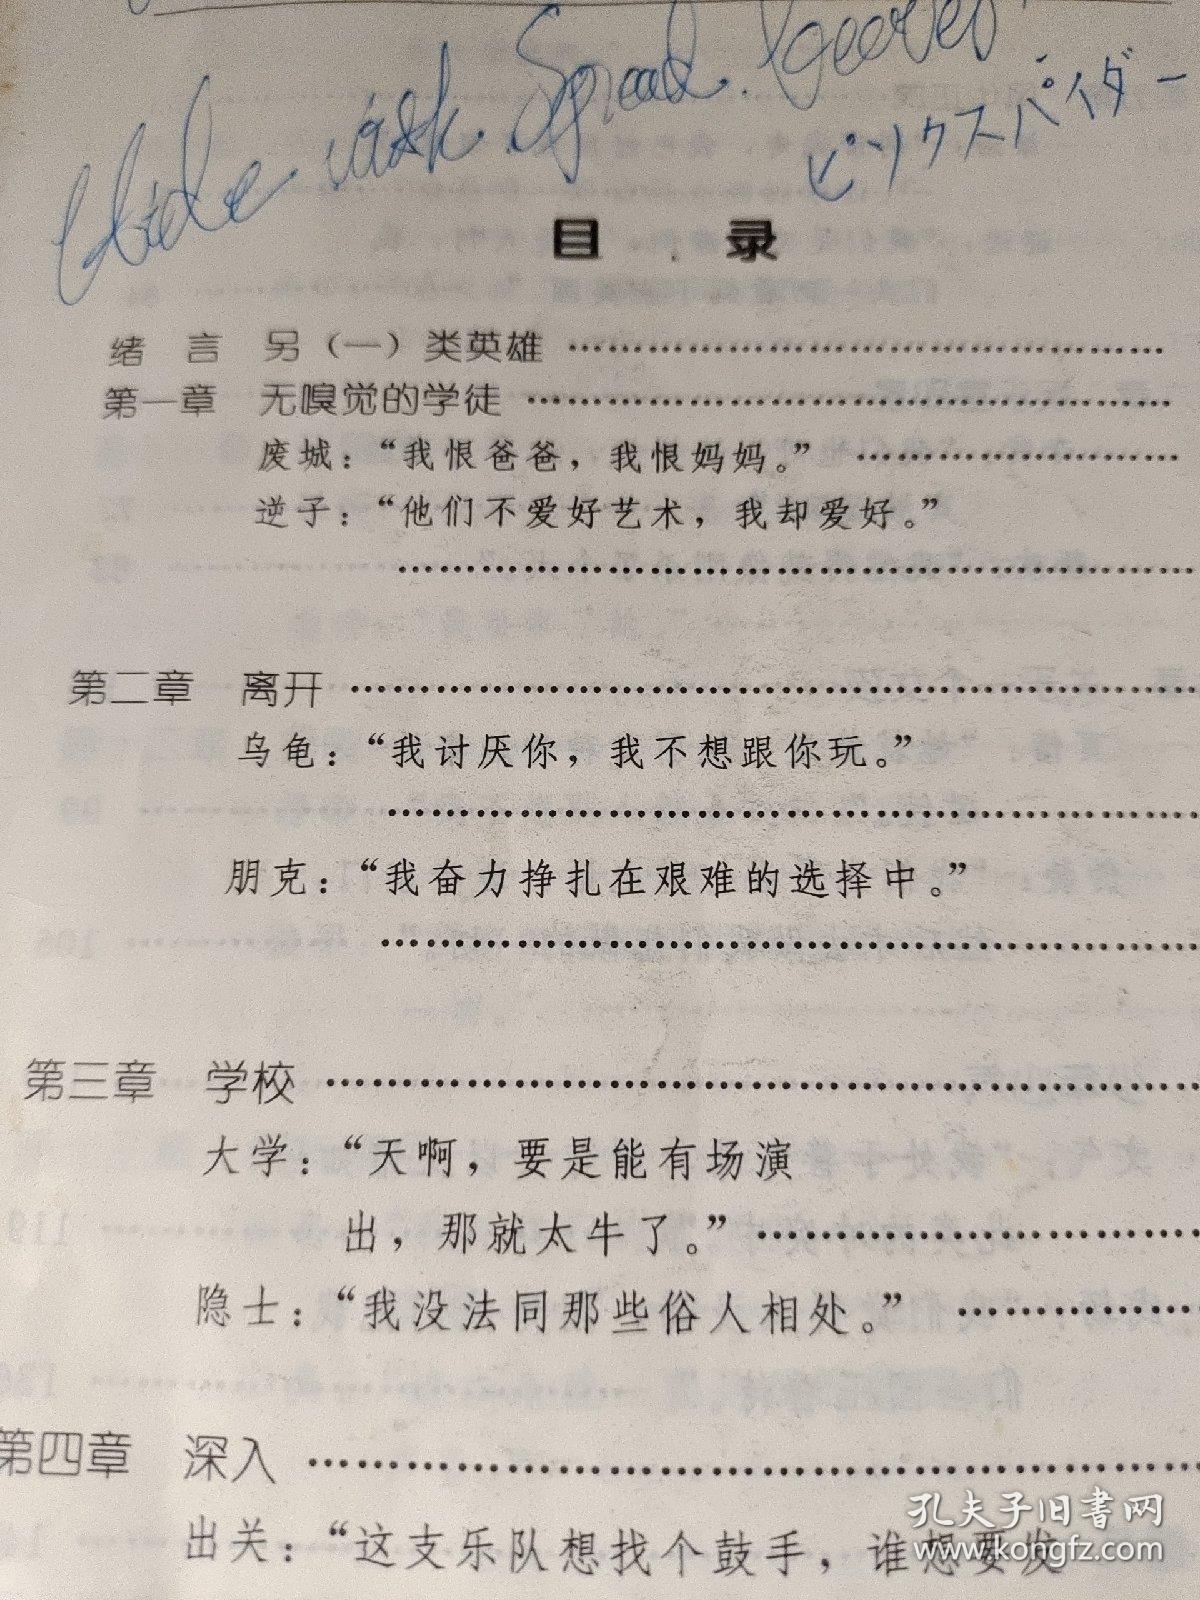 Hide. with. Spread.
ピンクスパイダー
目 录
绪 言 另（一）类英雄 ……………………………
第一章 无嗅觉的学徒 ……………………………
废城：“我恨爸爸，我恨妈妈。” ………………
逆子：“他们不爱好艺术，我却爱好。”
……………………………………
第二章 离开 ……………………………………
乌龟：“我讨厌你，我不想跟你玩。”
……………………………………
朋克：“我奋力挣扎在艰难的选择中。”
……………………………………
第三章 学校 ……………………………………
大学：“天啊，要是能有场演
出，那就太牛了。” ……………………
隐士：“我没法同那些俗人相处。” …………
第四章 深入 ……………………………………
出关：“这支乐队想找个鼓手，谁想要发
孔夫子旧书网
www.kongfz.com